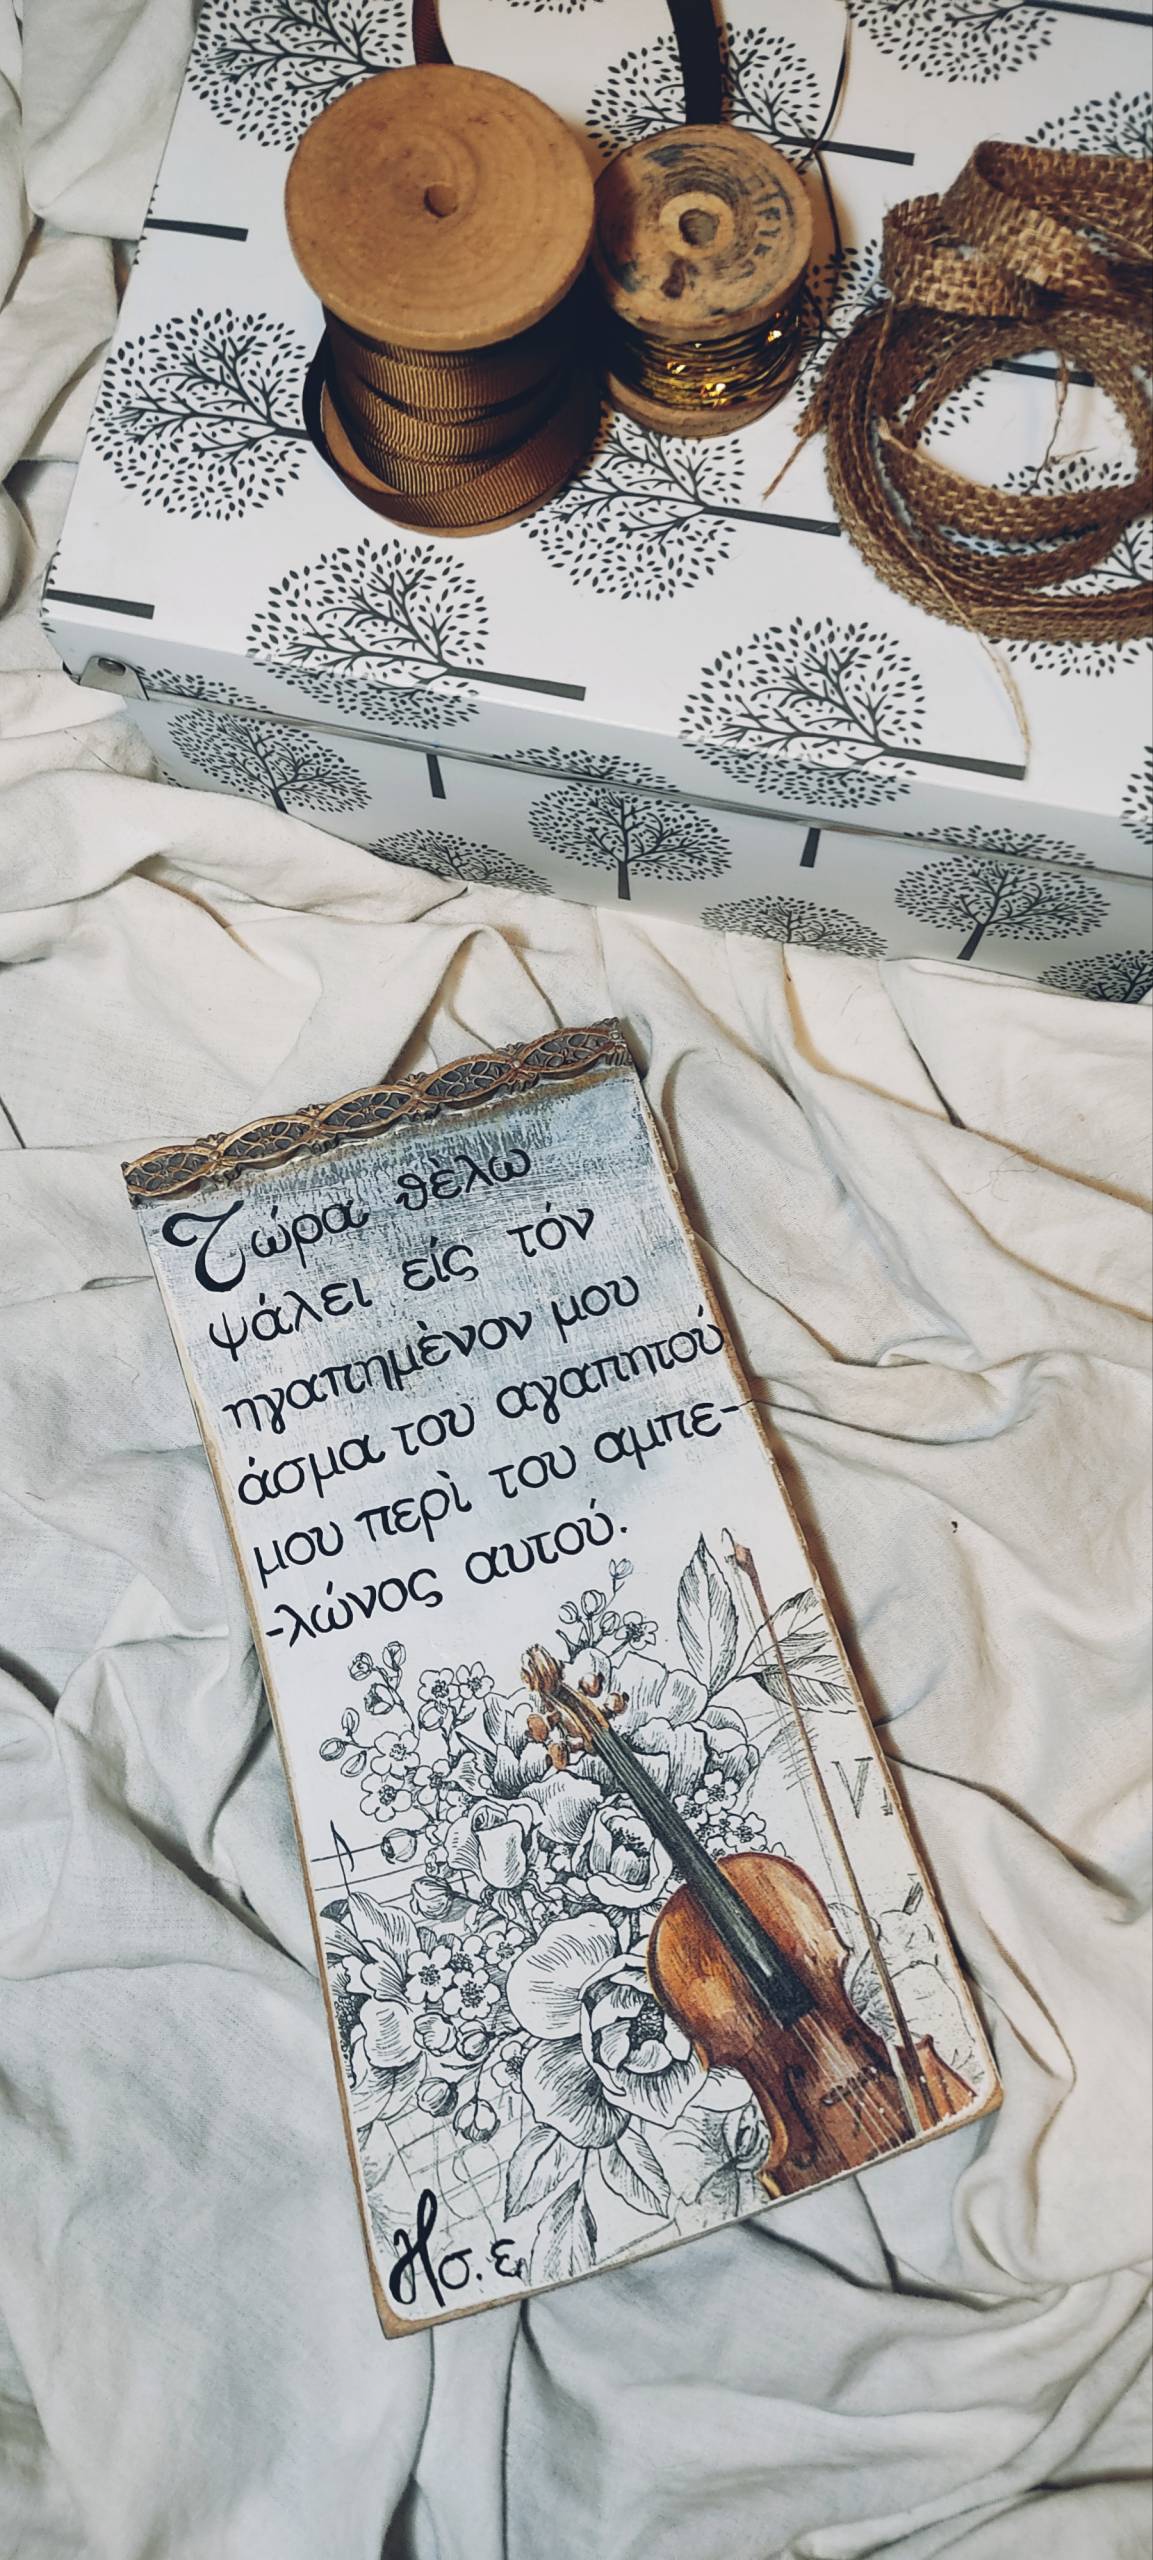 Τώρα θελω
ψάλει είς τόν
ηγαπημὲνον μου
άσμα του αγαπητού
μου περὶ του αμπε-
-λώνος αυτού.
V
Ησ. ε